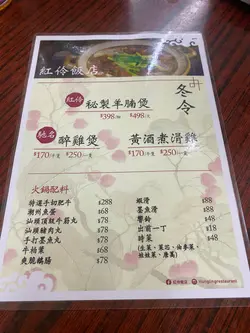 紅伶飯店
冬令
紅伶 秘製羊腩煲
$398/ $498/
馳名 醉雞煲 黃酒煮滑雞
$170/半隻 $250/一隻 $170/半隻 $250/一隻
火鍋配料
特選手切肥牛 $288
潮州魚蛋 $68
汕頭頂級牛筋丸 $78
汕頭豬肉丸 $78
手打墨魚丸 $78
牛柏葉 $68
爽脆鵝腸 $78
蝦滑 $88
墨魚滑 $88
響鈴 $48
出前一丁 $18
時菜 $48
(生菜、菜芯、油麥菜、
娃娃菜、唐蒿)